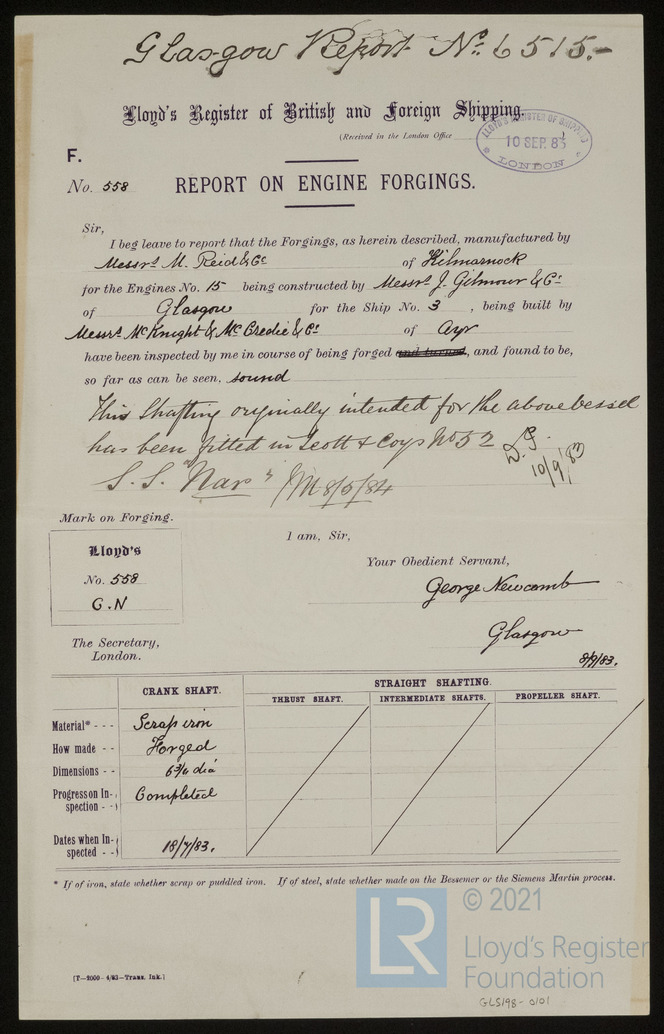 Glasgow Report No. 6515.-
Lloyd's Register of British and Foreign Shipping.
(Received in the London Office
LLOYD'S REGISTER OF SHIPPING
10 SEP. 83
LONDON
F.
No. 558
REPORT ON ENGINE FORGINGS.
Sir,
I beg leave to report that the Forgings, as herein described, manufactured by
Messrs. M. Reid & Co of Kilmarnock
for the Engines No. 15 being constructed by Messrs. J. Gilmour & Co:
of Glasgow for the Ship No. 3, being built by
Messrs. McKnight & McCredie & Co: of Ayr
have been inspected by me in course of being forged and turned, and found to be,
so far as can be seen, sound
This Shafting originally intended for the above vessel
has been fitted in Scott & Coys No 52
D. G.
10/9/83
S.S. "Nar" 8/5/84
Mark on Forging.
Lloyd's
No. 558
G.N
I am, Sir,
Your Obedient Servant,
George Newcomb
Glasgow
8/9/83.
The Secretary,
London.
CRANK SHAFT.
STRAIGHT SHAFTING.
THRUST SHAFT.
INTERMEDIATE SHAFTS.
PROPELLER SHAFT.
Material* - - - Scrap iron
How made - - Forged
Dimensions - - 6¾ dia
Progress on In-
spection - - Completed
Dates when In-
spected - - 18/7/83.
* If of iron, state whether scrap or puddled iron. If of steel, state whether made on the Bessemer or the Siemens Martin process.
[T—2000—4/83—Trans. Ink.]
LR
© 2021
Lloyd's Register
Foundation
GLS198-0101